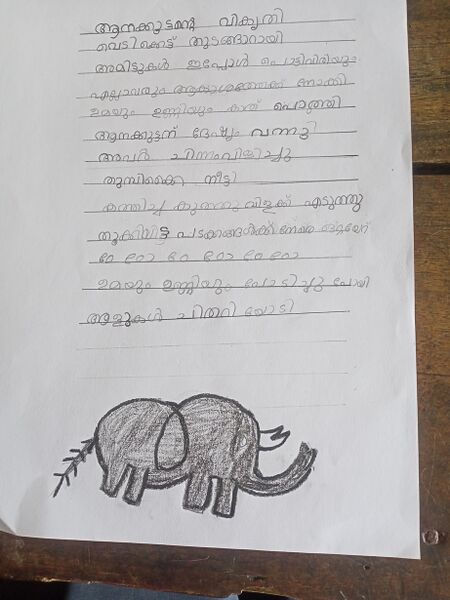 ആനക്കുട്ടൻ്റെ വികൃതി
വെടിക്കെട്ട് തുടങ്ങാറായി
അമിട്ടുകൾ ഇപ്പോൾ പൊട്ടിവിരിയും
എല്ലാവരും ആകാശത്തേക്ക് നോക്കി
ഉമയും ഉണ്ണിയും കാത് പൊത്തി
ആനക്കുട്ടന് ദേഷ്യം വന്നു
അവൻ ചിന്നംവിളിച്ചു
തുമ്പിക്കൈ നീട്ടി
കത്തിച്ച കുത്തുവിളക്ക് എടുത്തു
തൂക്കിയിട്ട പടക്കങ്ങൾക്ക് നേരെ ഒറ്റയേറ്
ഠേ ഠോ ഠേ ഠോ ഠേ ഠോ
ഉമയും ഉണ്ണിയും പേടിച്ചു പോയി
ആളുകൾ ചിതറി യോടി